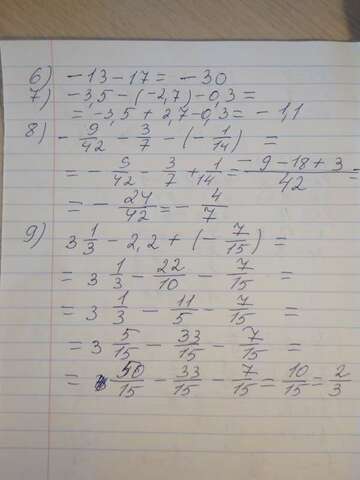 6) -13-17 = -30
7) -3,5 - (-2,7) - 0,3 =
= -3,5 + 2,7 - 0,3 = -1,1
8) - 9/42 - 3/7 - (- 1/14) =
= - 9/42 - 3/7 + 1/14 = -9-18+3/42 =
= - 24/42 = - 4/7
9) 3 1/3 - 2,2 + (- 7/15) =
= 3 1/3 - 22/10 - 7/15 =
= 3 1/3 - 11/5 - 7/15 =
= 3 5/15 - 33/15 - 7/15 =
= 50/15 - 33/15 - 7/15 = 10/15 = 2/3